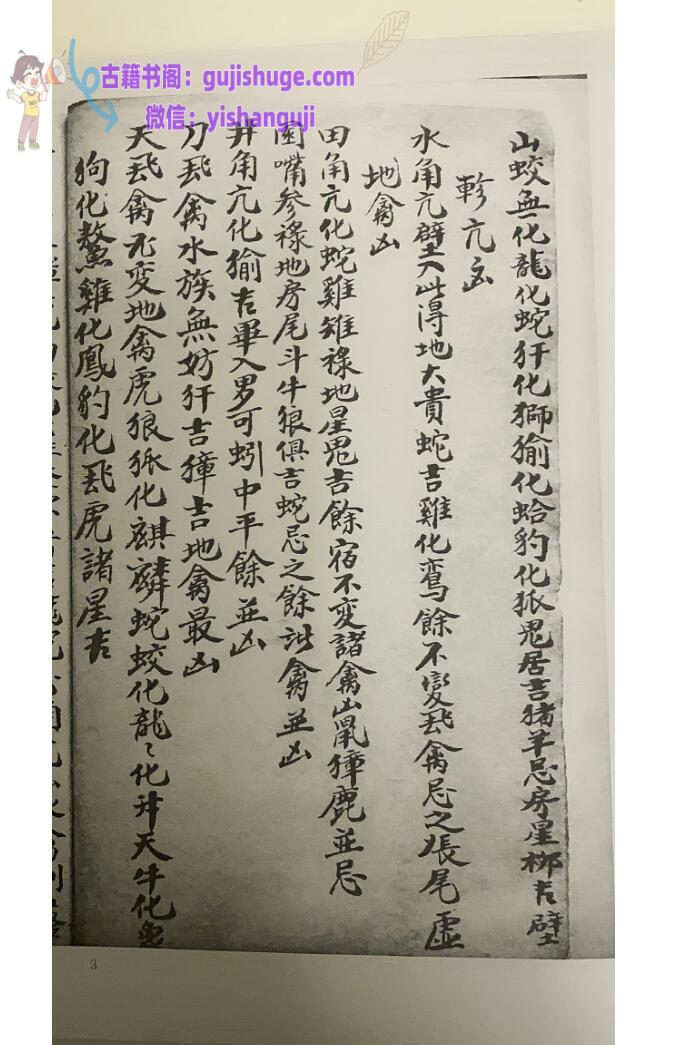 古籍书阁：gujishuge.com
微信：yishanguji
山蛟無化龍化蛇犴化獅㺄化蛤豹化狐鬼居吉猪羊忌房星柳吉壁
軫亢凶
水角亢壁入此得地大貴蛇吉雞化鸞餘不變飛禽忌之張尾虛
地禽凶
田角亢化蛇雞雉祿地星鬼吉餘宿不变諸禽山鼠獐鹿並忌
園嘴参祿地房尾斗牛狼俱吉蛇忌之餘諸禽並凶
井角亢化㺄吉畢入男可蚓中平餘並凶
刀飛禽水族無妨犴吉獐吉地禽最凶
天飛禽不变地禽虎狼狐化麒麟蛇蛟化龍〻化升天牛化
狗化鰲雞化鳳豹化飛虎諸星吉
3